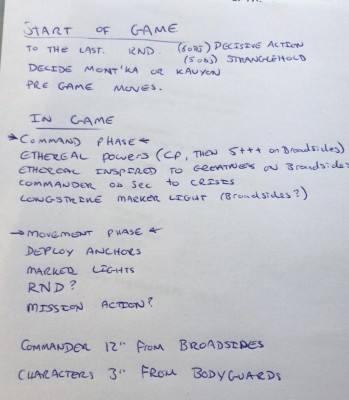 START OF GAME
TO THE LAST. RND. (60%) DECISIVE ACTION
(50%) STRANGLEHOLD
DECIDE MONT'KA OR KAUYON
PRE GAME MOVES.
IN GAME
→COMMAND PHASE←
ETHEREAL POWERS (CP, THEN 5+++ on Broadsides)
ETHEREAL INSPIRED TO GREATNESS ON Broadsides
COMMANDER OB SEC TO CRISIS
LONGSTRIKE MARKER LIGHT (Broadsides?)
→MOVEMENT PHASE←
DEPLOY ANCHORS
MARKER LIGHTS
RND?
MISSION ACTION?
COMMANDER 12" FROM BROADSIDES
CHARACTERS 3" FROM BODYGUARDS